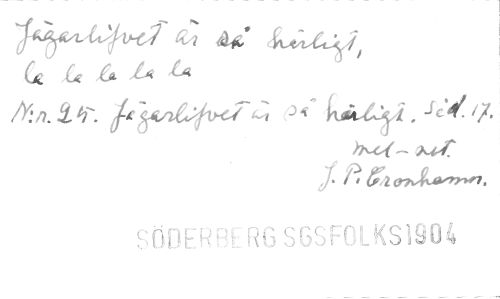 Jägarlifvet är så härligt,
la la la la la
N:r. 25. Jägarlifvet är så härligt. Sid. 17.
mel-not.
J. P. Cronhamn.
SÖDERBERG SGSFOLKS 1904